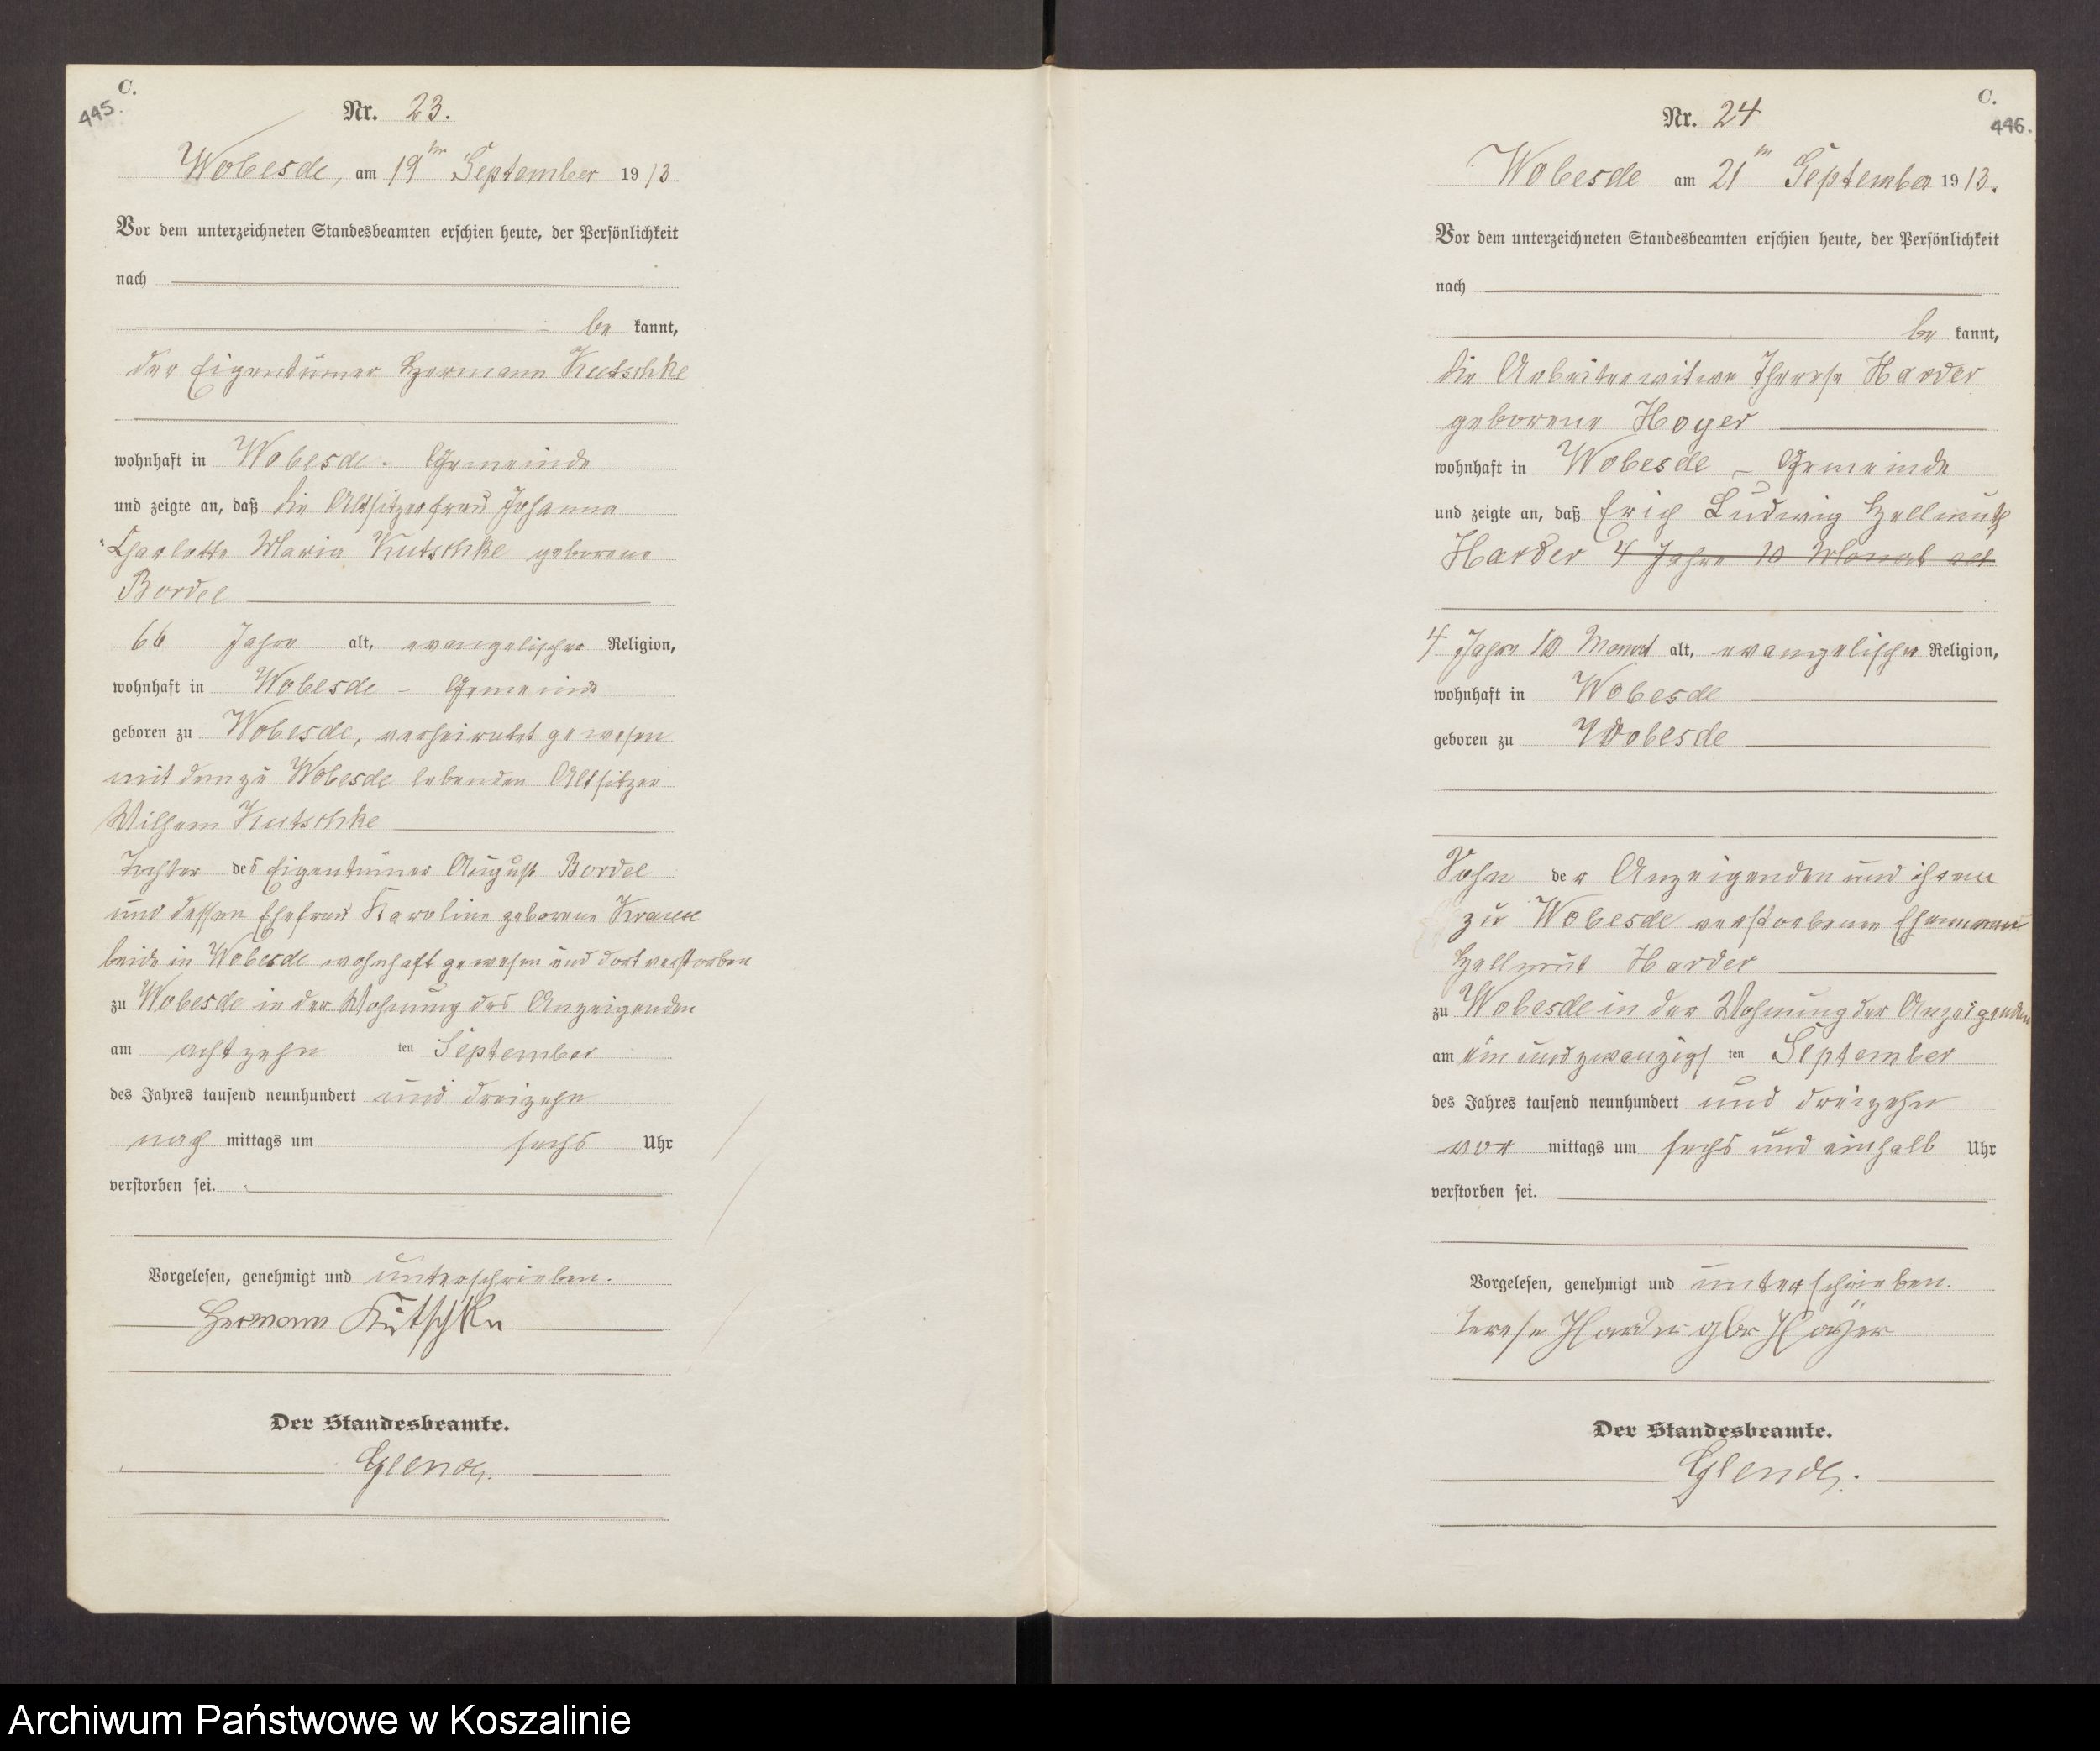 C.
445.
Nr. 23.
Wobesde, am 19ten September 1913
Vor dem unterzeichneten Standesbeamten erschien heute, der Persönlichkeit
nach
be kannt,
der Eigentümer Hermann Kutschke
wohnhaft in Wobesde - Gemeinde
und zeigte an, daß die Altsitzerfrau Johanna
Charlotte Maria Kutschke geborene
Bordel
66 Jahre alt, evangelischer Religion,
wohnhaft in Wobesde - Gemeinde
geboren zu Wobesde, verheiratet gewesen
mit dem zu Wobesde lebenden Altsitzer
Wilhem Kutschke
Tochter des Eigentümer August Bordel
und dessen Ehefrau Karoline geborene Krause
beide in Wobesde wohnhaft gewesen und dort verstorben
zu Wobesde in der Wohnung des Anzeigenden
am achtzehn ten September
des Jahres tausend neunhundert und dreizehn
nach mittags um sechs Uhr
verstorben sei.
Vorgelesen, genehmigt und unterschrieben.
Hermann Kutschke
Der Standesbeamte.
C.
446.
Nr. 24
Wobesde am 21ten September 1913.
Vor dem unterzeichneten Standesbeamten erschien heute, der Persönlichkeit
nach
be kannt,
die Arbeiterwitwe Therese Harder
geborene Hoyer
wohnhaft in Wobesde - Gemeinde
und zeigte an, daß Erich Ludwig Hellmuth
Harder 4 Jahre 10 Monat alt
4 Jahre 10 Monat alt, evangelischer Religion,
wohnhaft in Wobesde
geboren zu Wobesde
Sohn der Anzeigenden und ihrem
zu Wobesde verstorbenen Ehemann
Hellmut Harder
zu Wobesde in der Wohnung der Anzeigenden
am ein und zwanzigs ten September
des Jahres tausend neunhundert und dreizehn
vor mittags um sechs und einhalb Uhr
verstorben sei.
Vorgelesen, genehmigt und unterschrieben.
Terese Harder gbr Hoÿer
Der Standesbeamte.
Archiwum Państwowe w Koszalinie